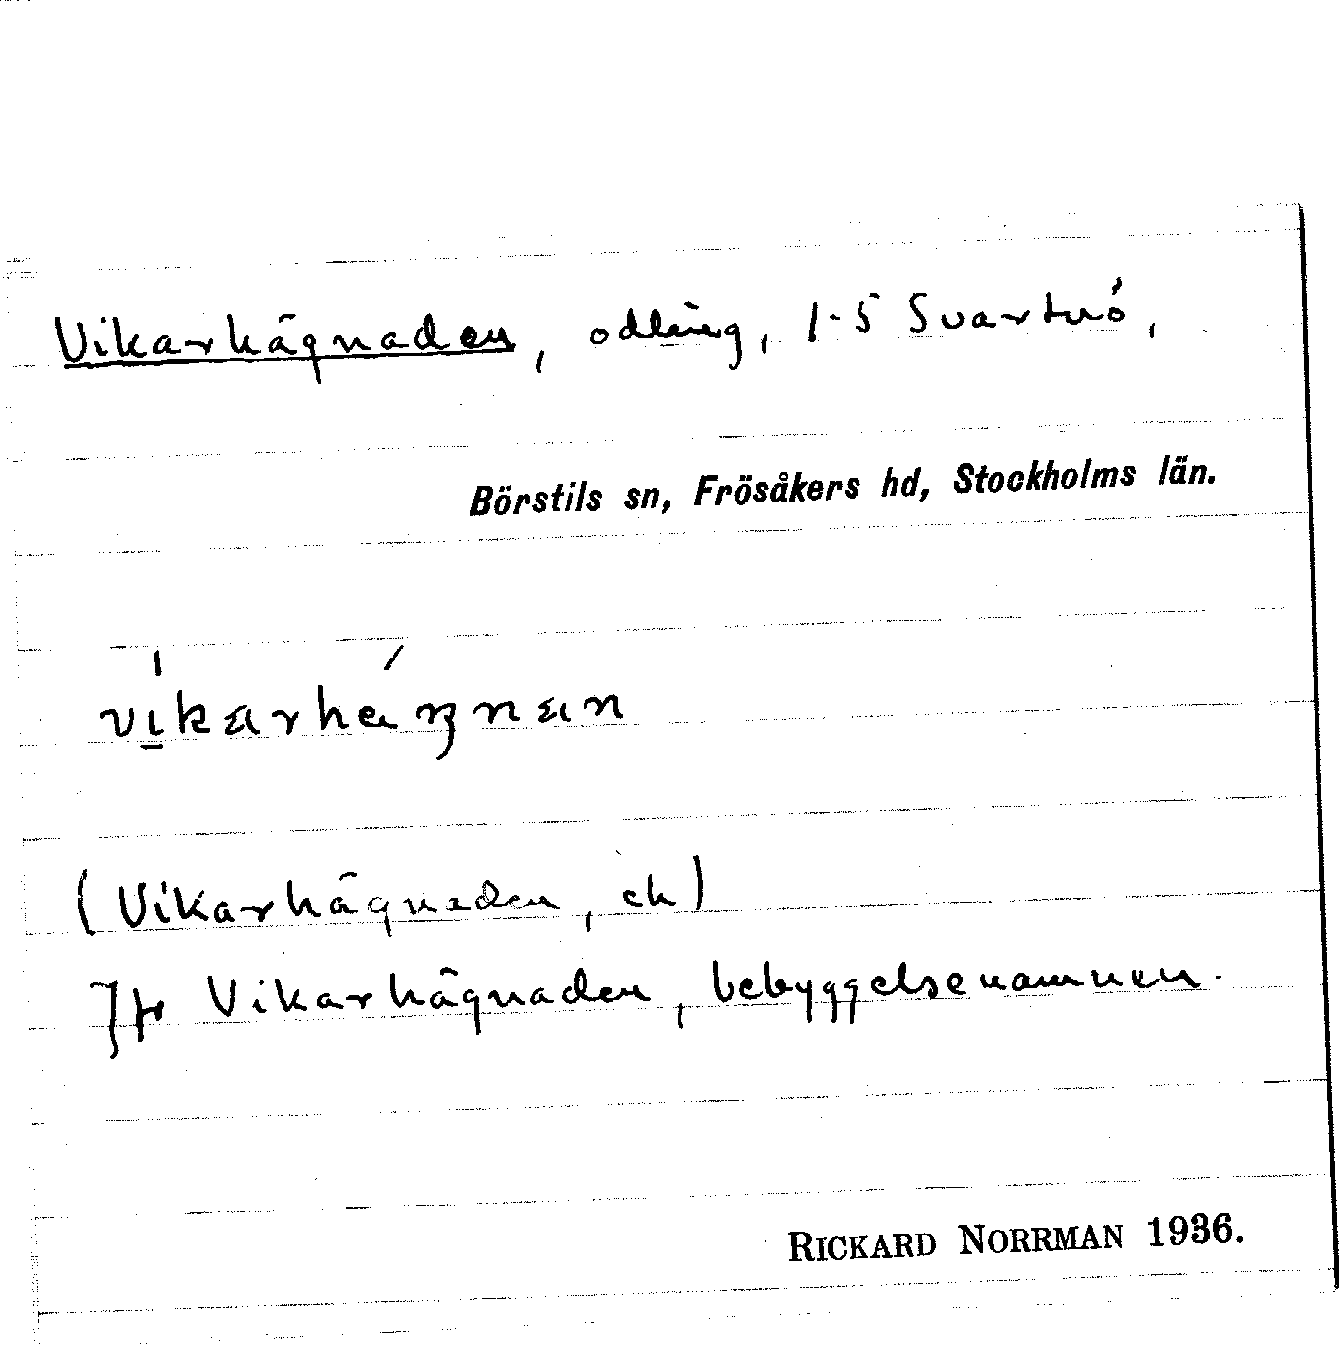 Vikarhägnaden, odling, 1-5 Svartnö,
Börstils sn, Frösåkers hd, Stockholms län.
(Vikarhägnaden, ek)
Jfr Vikarhägnaden, bebyggelsenamnen.
RICKARD NORRMAN 1936.